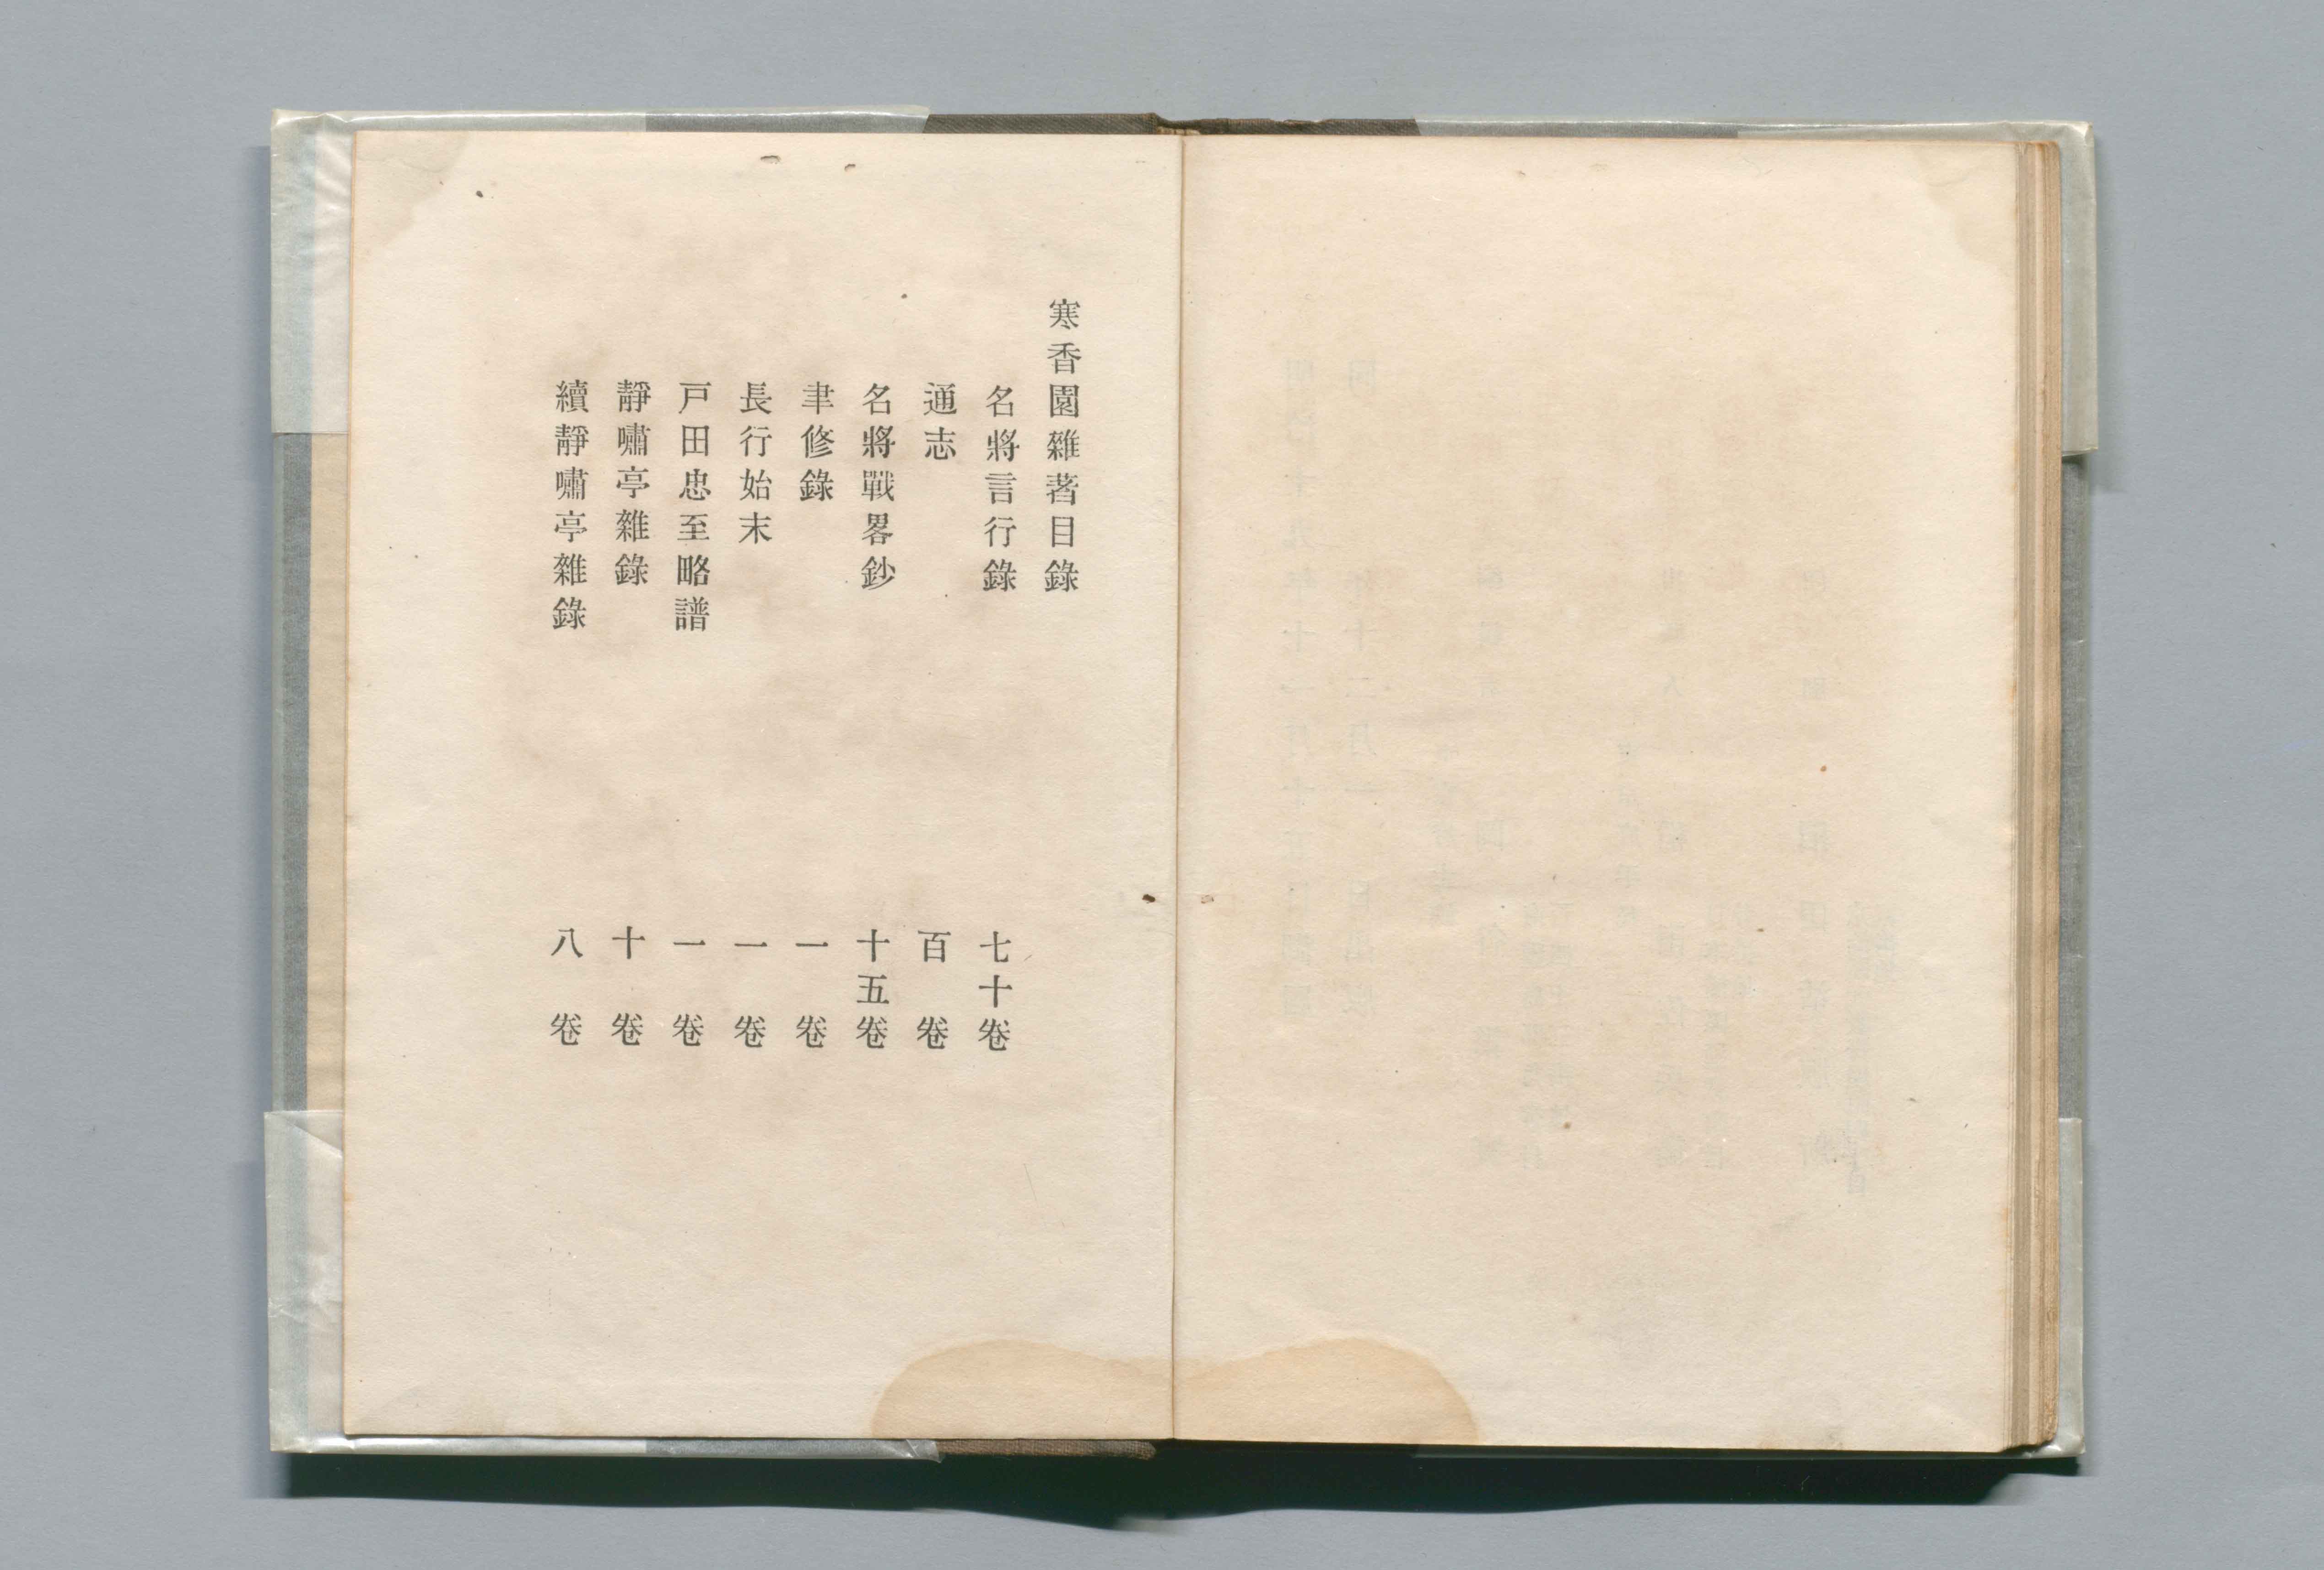 寒香園雜著目錄
名將言行錄　七十卷
通志　百卷
名將戰畧鈔　十五卷
聿修錄　一卷
長行始末　一卷
戸田忠至略譜　一卷
靜嘯亭雜錄　十卷
續靜嘯亭雜錄　八卷